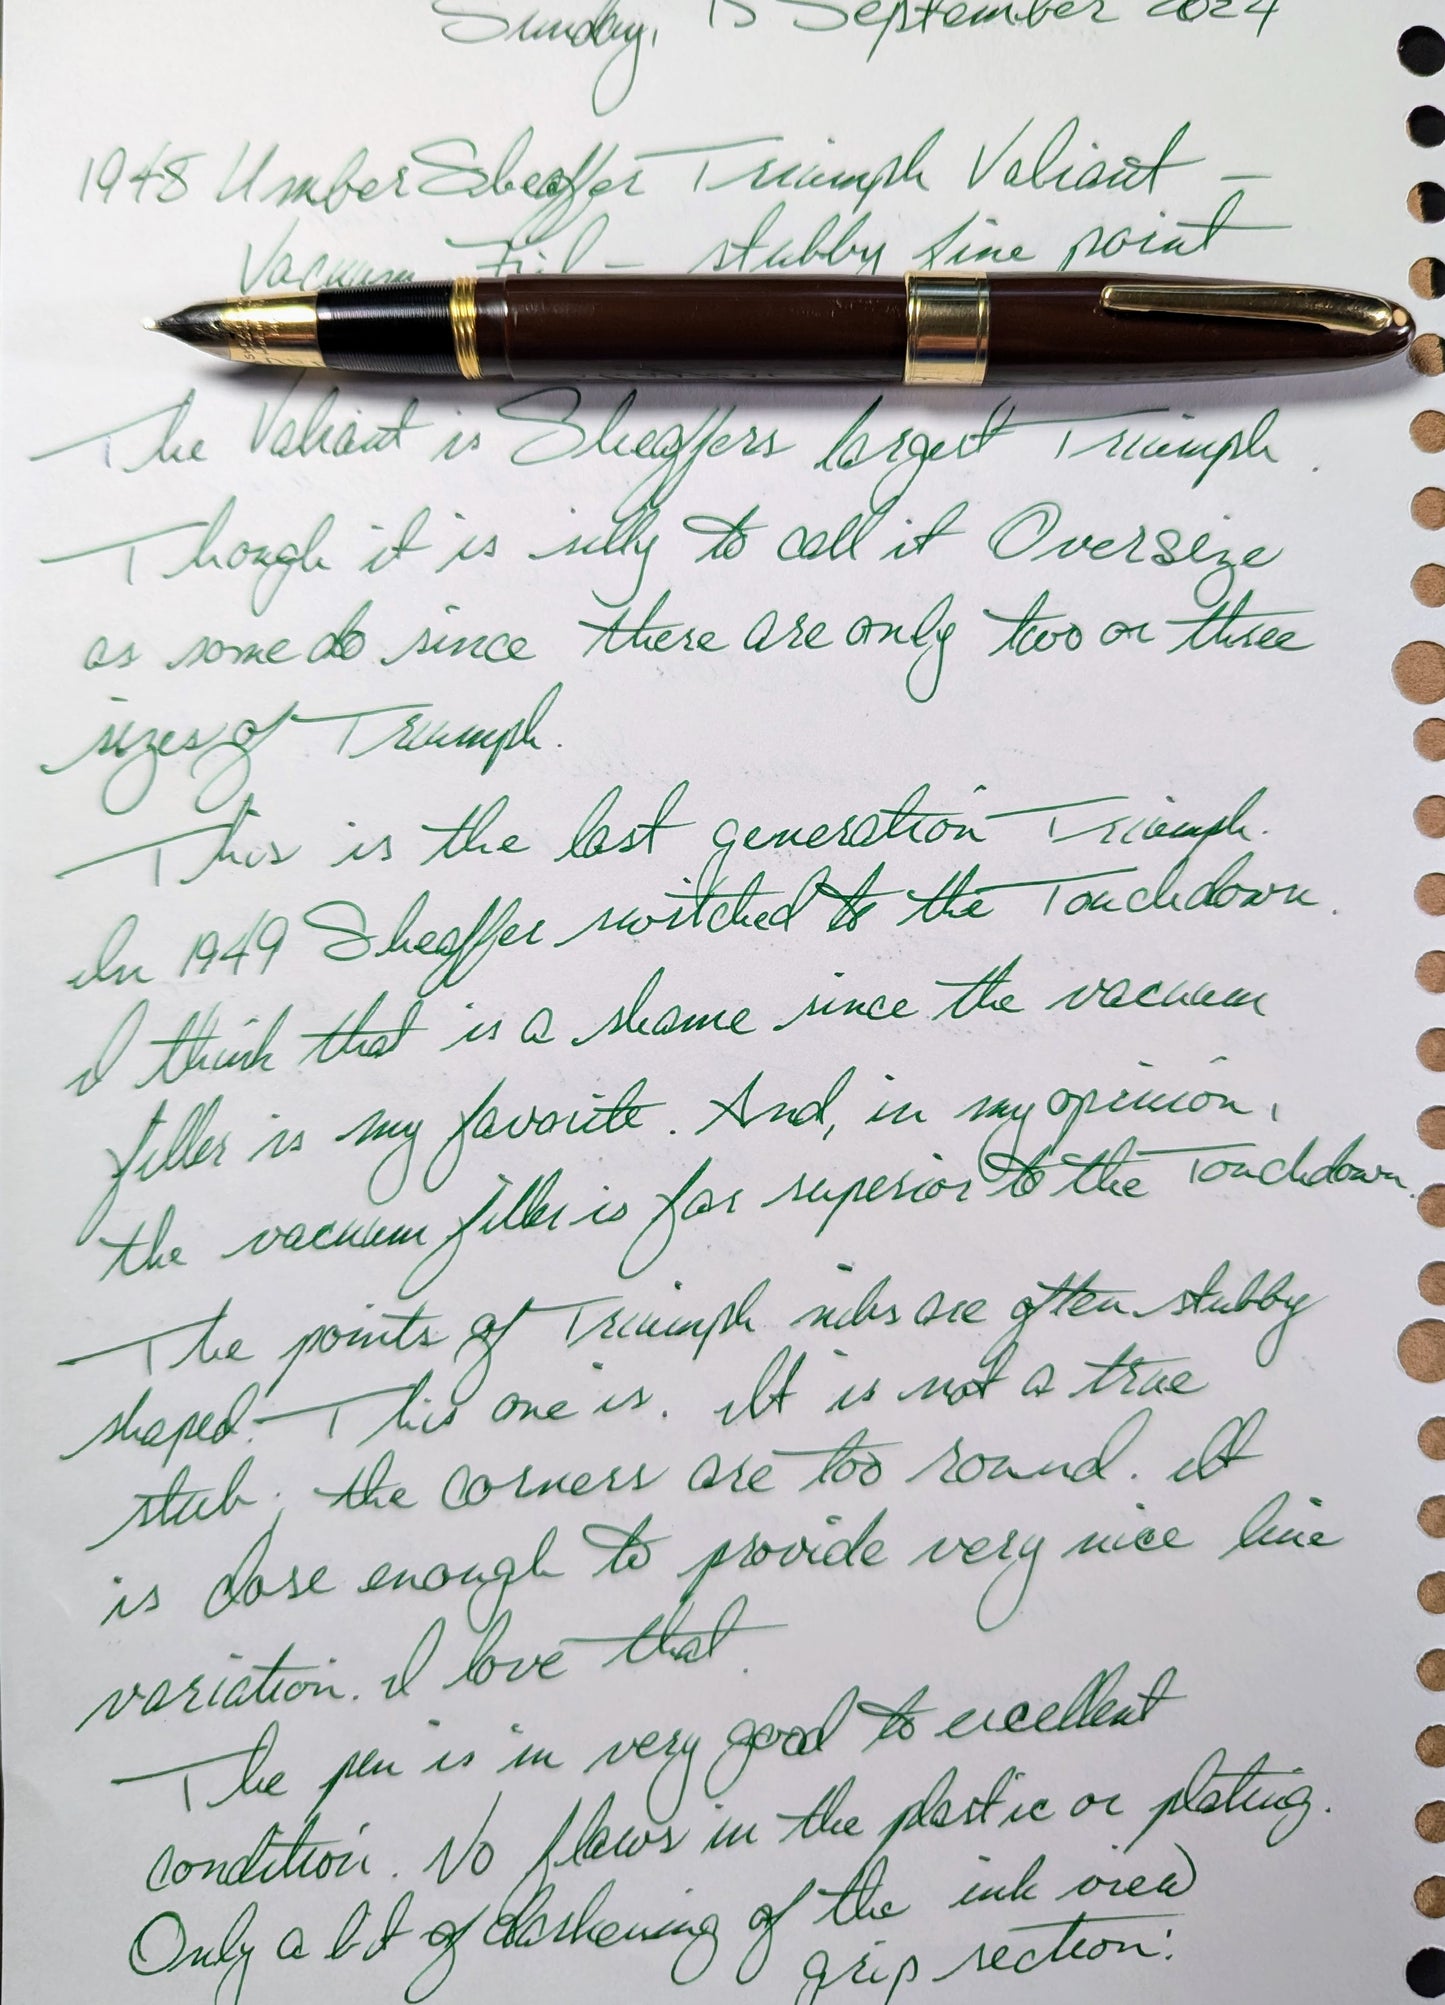 Sunday, 15 September 2024
1948 Umber Sheaffer Triumph Valiant -
Vacuum Fil - stubby fine point
The Valiant is Sheaffers largest Triumph.
Though it is silly to call it Oversize
as some do since there are only two or three
sizes of Triumph.
This is the last generation Triumph.
In 1949 Sheaffer switched to the Touchdown.
I think that is a shame since the vacuum
filler is my favorite. And, in my opinion,
the vacuum filler is far superior to the Touchdown.
The points of Triumph nibs are often stubby
shaped. This one is. It is not a true
stub; the corners are too round. It
is close enough to provide very nice line
variation. I love that.
The pen is in very good to excellent
condition. No flaws in the plastic or plating.
Only a bit of darkening of the ink view
grip section.